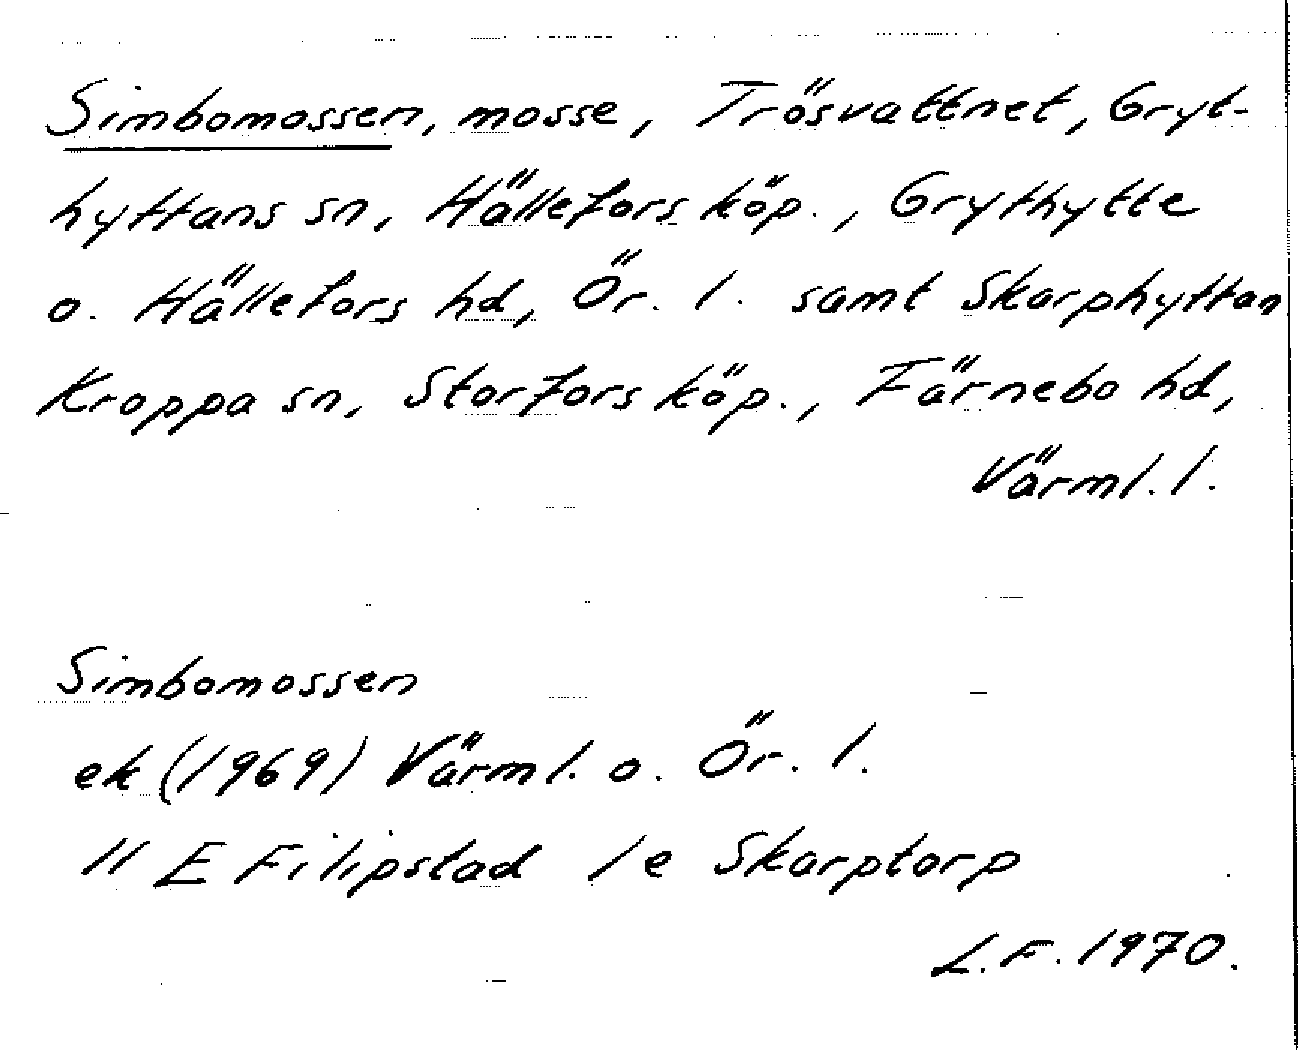 Simbomossen, mosse, Trösvattnet, Gryt-
hyttans sn, Hällefors köp., Grythytte
o. Hällefors hd, Ör. l. samt Skarphyttan
Kroppa sn, Storfors köp., Färnebo hd,
Värml. l.
Simbomossen
ek (1969) Värml. o. Ör. l.
11 E Filipstad 1 e Skarptorp
L.F. 1970.